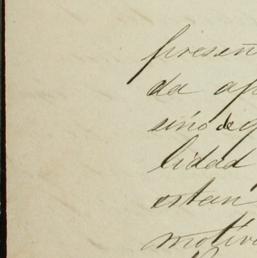 presen
da ap
sino de q
lidad
estan
motiv